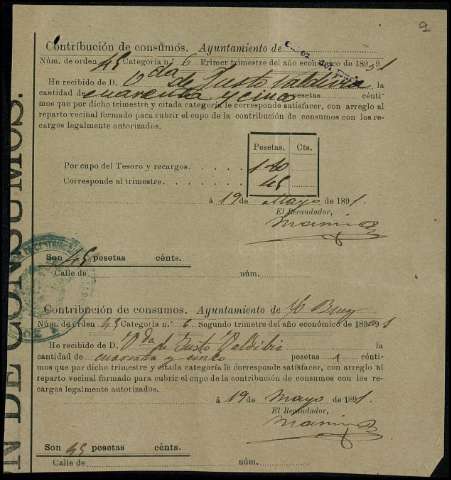 9
Contribución de consumos. Ayuntamiento de
Núm. de orden 45 Categoría n.º 6 Primer trimestre del año económico de 1890 91
He recibido de D. Vda de Justo Valdivia la
cantidad de cuarenta y cinco pesetas cénti-
mos que por dicho trimestre y citada categoría le corresponde satisfacer, con arreglo al
reparto vecinal formado para cubrir el cupo de la contribución de consumos con los re-
cargos legalmente autorizados.
Pesetas. Cts.
Por cupo del Tesoro y recargos. 180
Corresponde al trimestre. 45
á 19 de Mayo de 1891.
El Recaudador,
Son 45 pesetas cénts.
Calle de núm.
N DE CONSUMOS.
Contribución de consumos. Ayuntamiento de
Núm. de orden 45 Categoría n.º 6 Segundo trimestre del año económico de 1890 91
He recibido de D. Vda de Justo
cantidad de cuarenta y cinco pesetas cénti-
mos que por dicho trimestre y citada categoría le corresponde satisfacer, con arreglo al
reparto vecinal formado para cubrir el cupo de la contribución de consumos con los re-
cargos legalmente autorizados.
á 19 de Mayo de 1891.
El Recaudador,
Son 45 pesetas cénts.
Calle de núm.